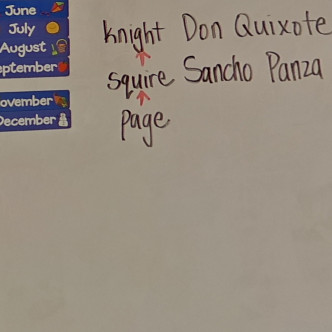 June
July
August
eptember
ovember
December
knight Don Quixote
squire Sancho Panza
page